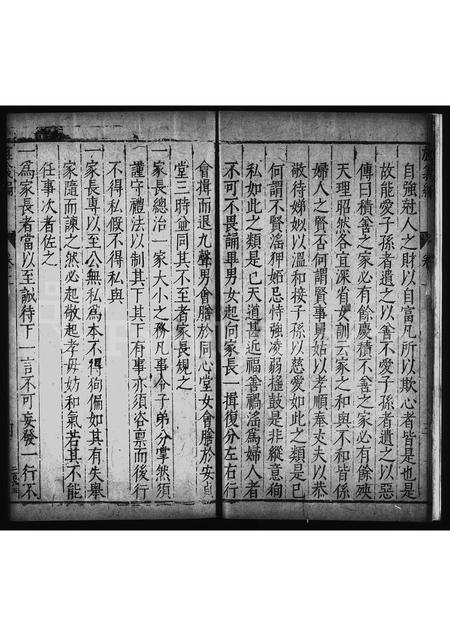 自強尅人之財以自富凡所以欺心者皆是也是
故能愛子孫者遺之以善不愛子孫者遺之以惡
傳曰積善之家必有餘慶積不善之家必有餘殃
天理昭然各宜深省女訓云家之和與不和皆係
婦人之賢否何謂賢事舅姑以孝順奉丈夫以恭
敬待娣姒以溫和接子孫以慈愛如此之類是已
何謂不賢淫狎妬忌恃強凌弱搖鼓是非縱意徇
私如此之類是已天道甚近福善禍淫為婦人者
不可不畏誦畢男女起向家長一揖復分左右行
會揖而退九聲男會膳於同心堂女會膳於安貞
堂三時並同其不至者家長規之
一家長總治一家大小之務凡事令子弟分掌然須
謹守禮法以制其下其下有事亦須咨稟而後行
不得私假不得私與
一家長專以至公無私為本不得徇偏如其有失舉
家隨而諫之然必起敬起孝毋妨和氣若其不能
任事次者佐之
一為家長者當以至誠待下一言不可妄發一行不